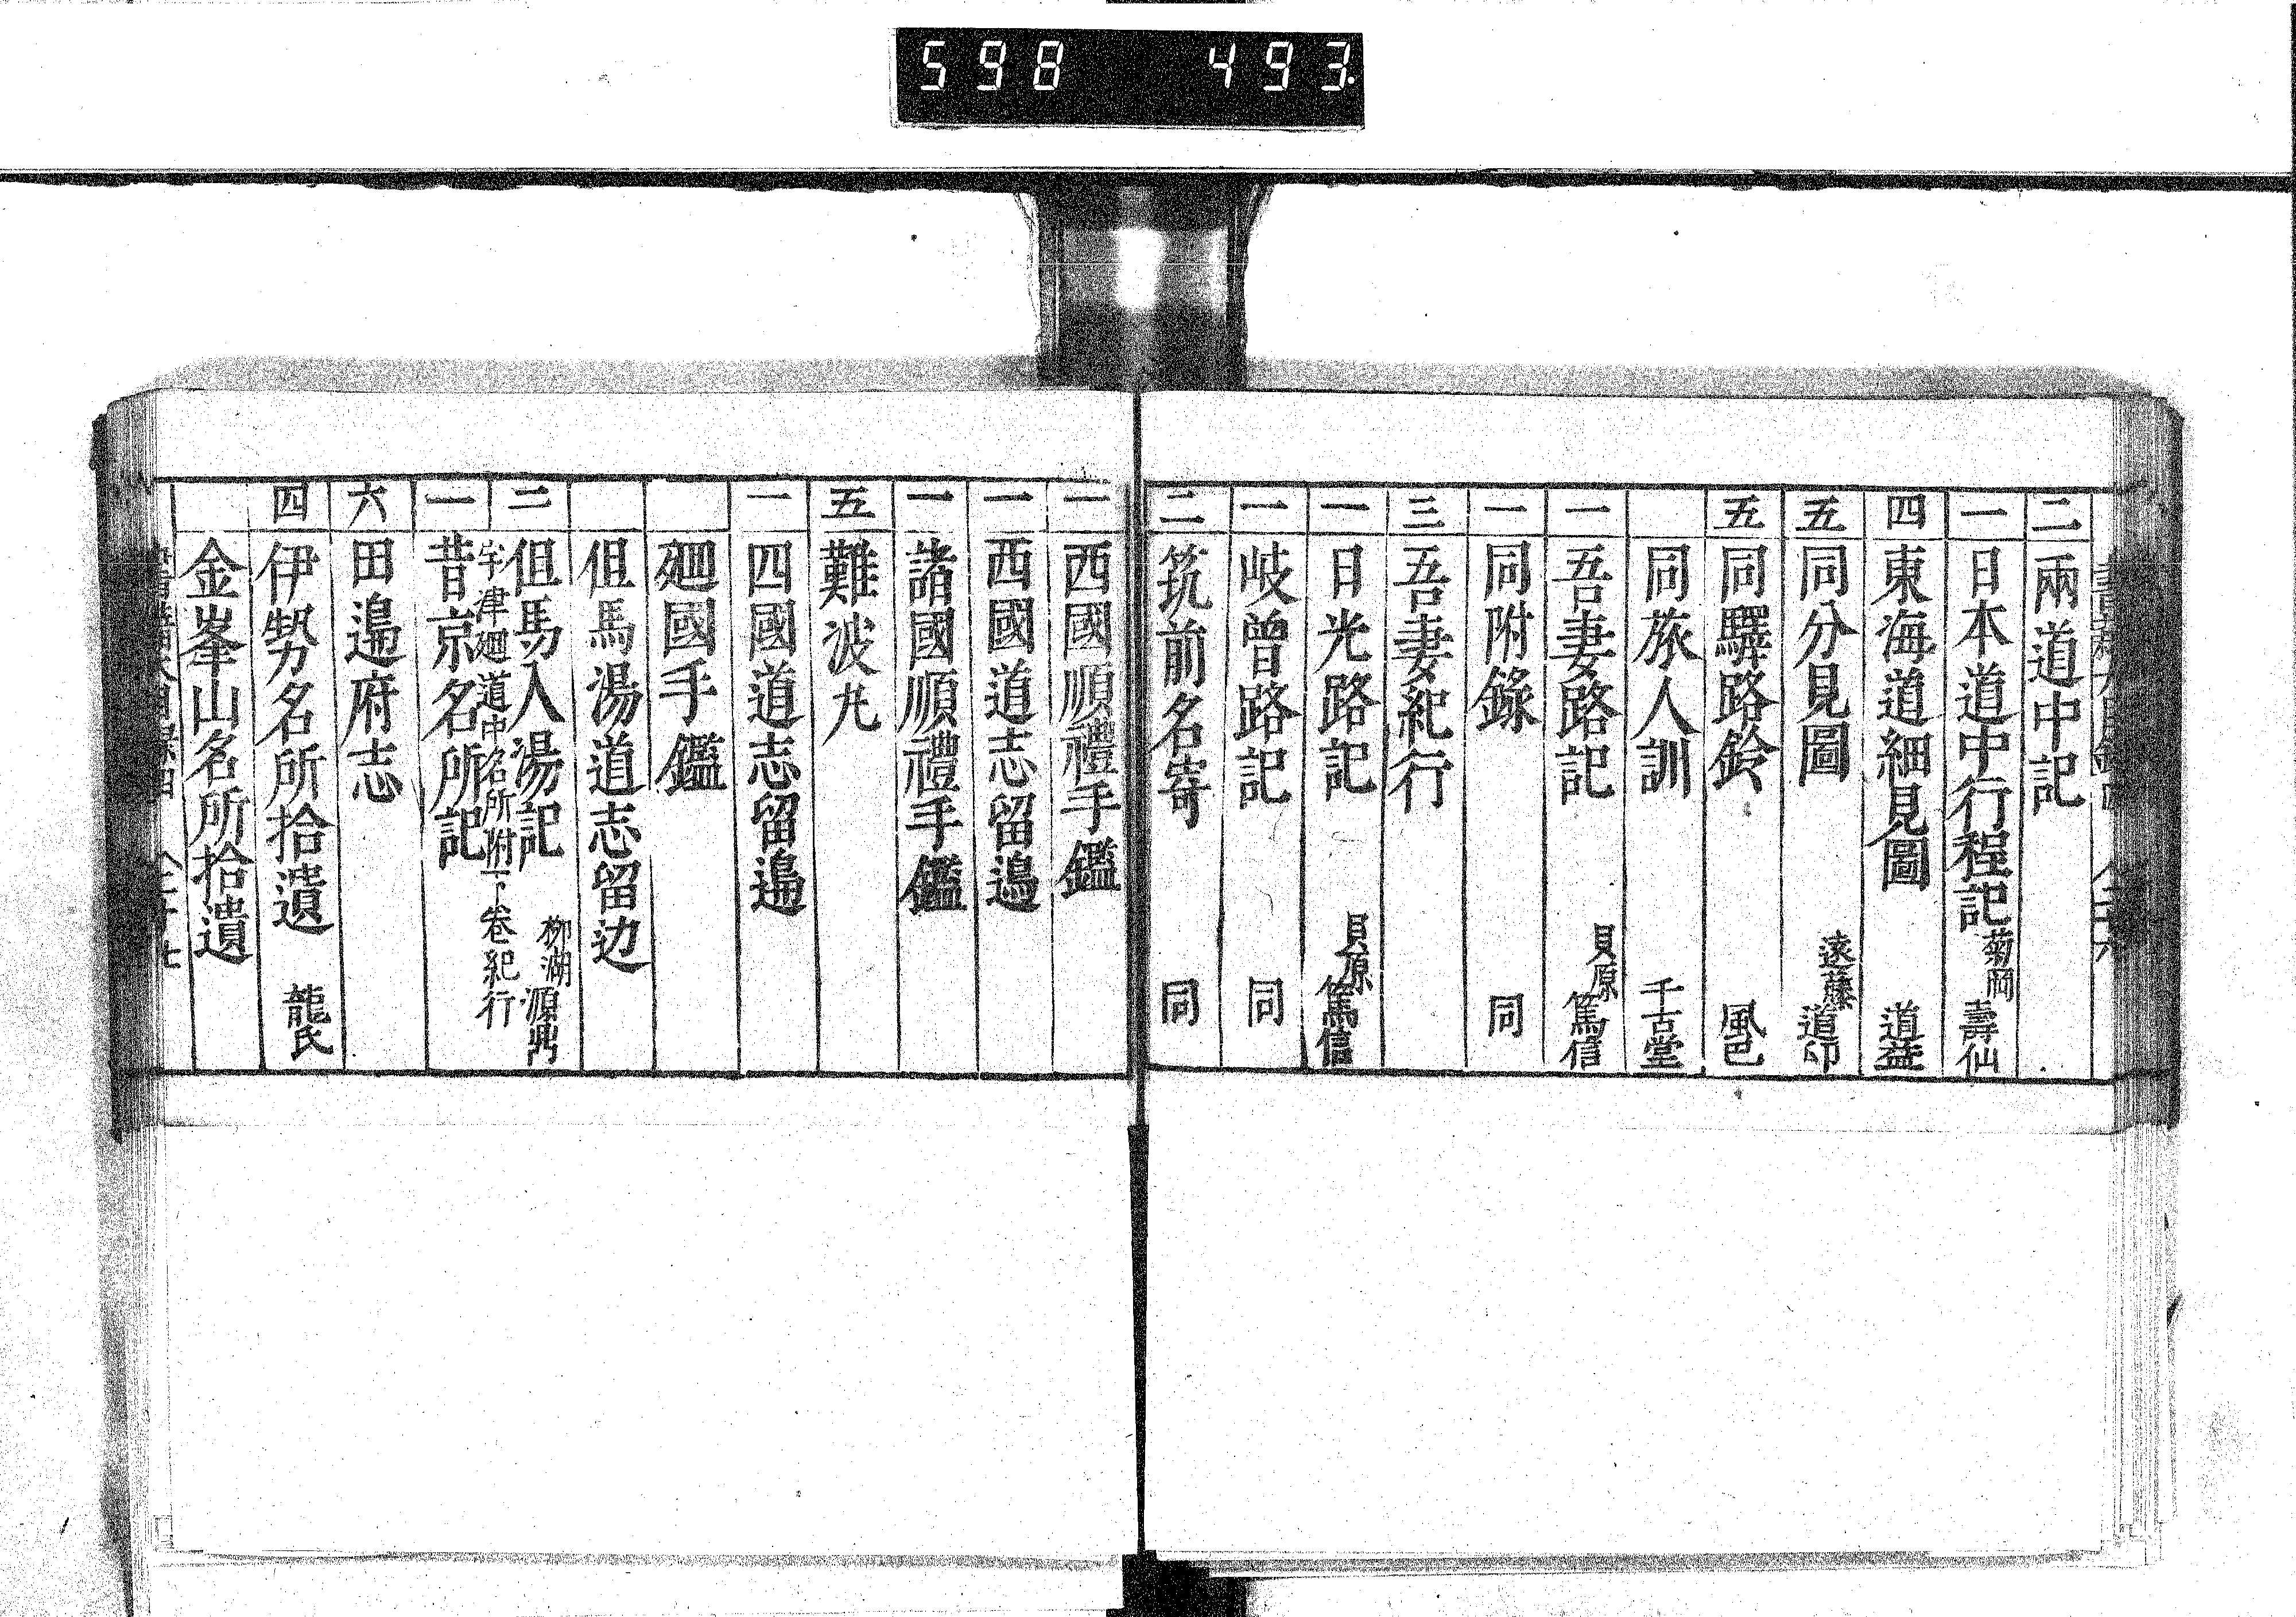 598 493.
二 兩道中記
一 日本道中行程記 菊岡 壽仙
四 東海道細見圖 道益
五 同分見圖 遠藤 道印
五 同驛路鈴 風巴
同旅人訓 千古堂
一 吾妻路記 貝原 篤信
一 同附錄 同
三 吾妻紀行
一 日光路記 貝原 篤信
一 岐曽路記 同
二 筑前名寄 同
一 西國順禮手鑑
一 西國道志留邊
一 諸國順禮手鑑
五 難波丸
一 四國道志留邊
廻國手鑑
但馬湯道志留边
二 但馬入湯記 柳湖 源鼎
宇津廻道中名所附下卷紀行
一 昔京名所記
六 田邊府志
四 伊勢名所拾遺 龍氏
金峯山名所拾遺